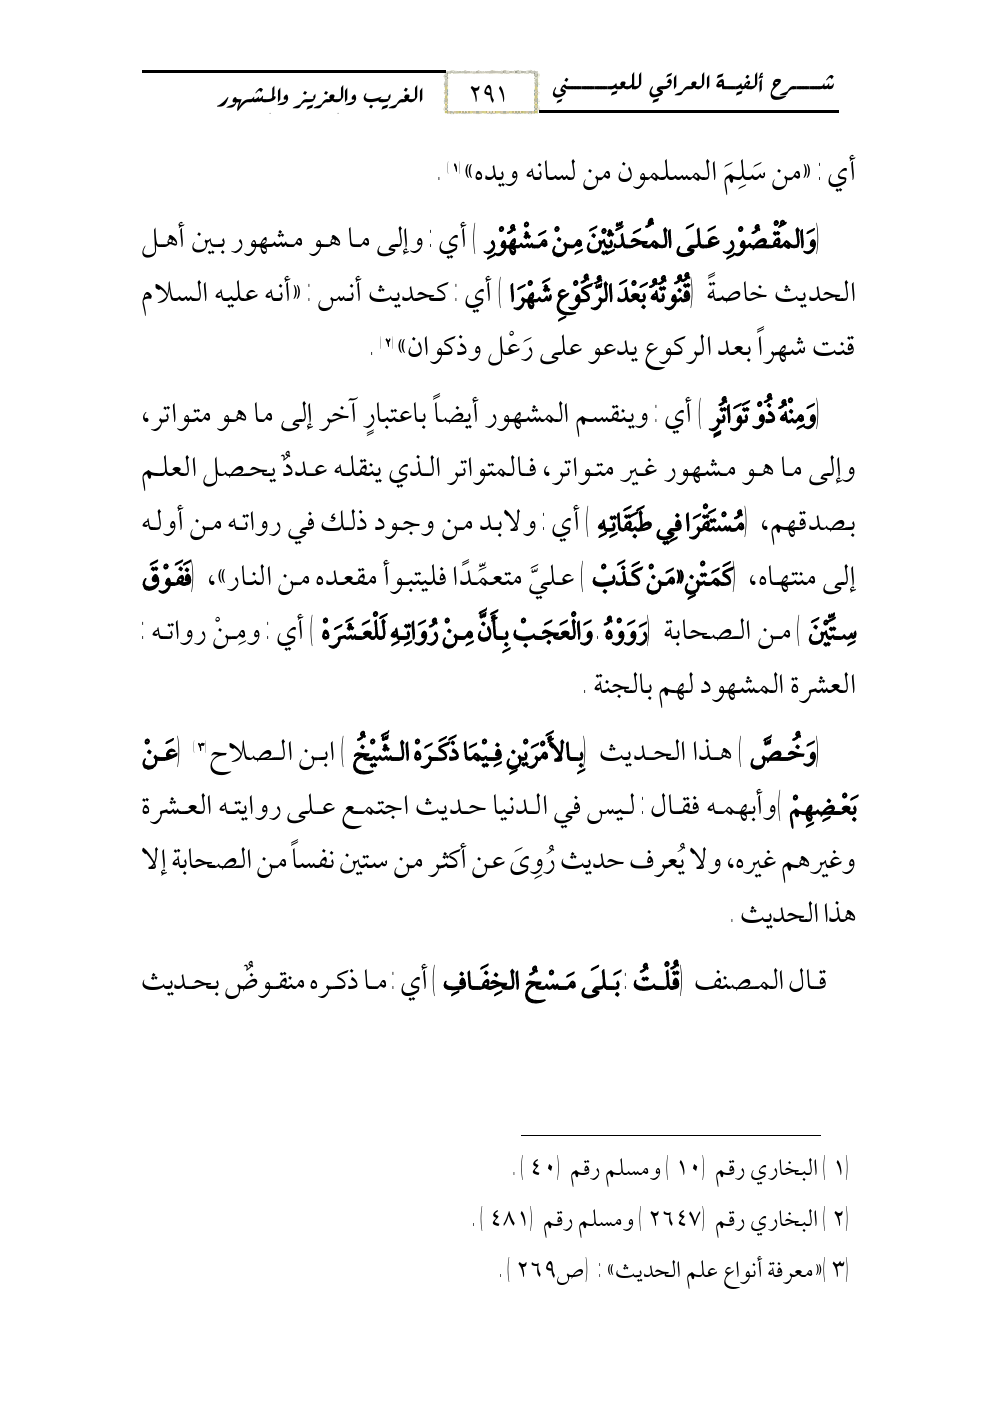 شـــــرح ألفيـة العراقي للعيـــــــني
٢٩١
الغريب والعزيز والمشهور
أي : «من سَلِمَ المسلمون من لسانه ويده»(١) .
(وَالمَقْصُوْرِ عَلىَ المُحَدِّثِيْنَ مِنْ مَشْهُوْرِ ) أي : وإلى ما هو مشهور بين أهل
الحديث خاصةً (قُنُوتُهُ بَعْدَ الرُّكُوْعِ شَهْرَا ) أي : كحديث أنس : «أنه عليه السلام
قنت شهراً بعد الركوع يدعو على رَعْل وذكوان»(٢) .
(وَمِنْهُ ذُوْ تَوَاتُرٍ ) أي : وينقسم المشهور أيضاً باعتبارٍ آخر إلى ما هو متواتر،
وإلى ما هو مشهور غير متواتر، فالمتواتر الذي ينقله عددٌ يحصل العلم
بصدقهم، (مُسْتَقْرَا فِي طَبَقَاتِهِ ) أي : ولابد من وجود ذلك في رواته من أوله
إلى منتهاه، (كَمَتْنِ«مَنْ كَذَبْ ) عليَّ متعمِّدًا فليتبوأ مقعده من النار»، (فَفَوْقَ
سِتِّيْنَ ) من الصحابة (رَوَوْهُ . وَالْعَجَبْ بِأَنَّ مِنْ رُوَاتِهِ لَلْعَشَرَهْ ) أي : ومِنْ رواته :
العشرة المشهود لهم بالجنة .
(وَخُصَّ ) هذا الحديث (بِالأَمْرَيْنِ فِيْمَا ذَكَرَهْ الشَّيْخُ ) ابن الصلاح(٣) (عَنْ
بَعْضِهِمْ )وأبهمه فقال : ليس في الدنيا حديث اجتمع على روايته العشرة
وغيرهم غيره، ولا يُعرف حديث رُوِىَ عن أكثر من ستين نفساً من الصحابة إلا
هذا الحديث .
قال المصنف (قُلْتُ : بَلىَ مَسْحُ الخِفَافِ ) أي : ما ذكره منقوضٌ بحديث
(١ ) البخاري رقم (١٠ ) ومسلم رقم (٤٠ ) .
(٢ ) البخاري رقم (٢٦٤٧ ) ومسلم رقم (٤٨١ ) .
(٣ )«معرفة أنواع علم الحديث» : (ص٢٦٩ ) .